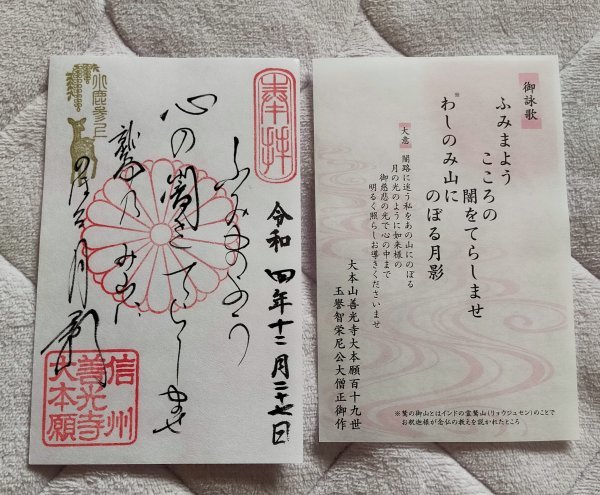 奉拝
令和四年十二月二十七日
ふみまよう
心の闇をてらしませ
鷲乃み山に
のぼる月影
信州
善光寺
大本願
御詠歌
ふみまよう
こころの
闇をてらしませ
※わしのみ山に
のぼる月影
大意
闇路に迷う私をあの山にのぼる
月の光のように如来様の
御慈悲の光で心の中まで
明るく照らしお導きくださいませ
大本山善光寺大本願百十九世
玉誉智栄尼公大僧正御作
※鷲の御山とはインドの霊鷲山(リョウジュセン)のことで
お釈迦様が念仏の教えを説かれたところ